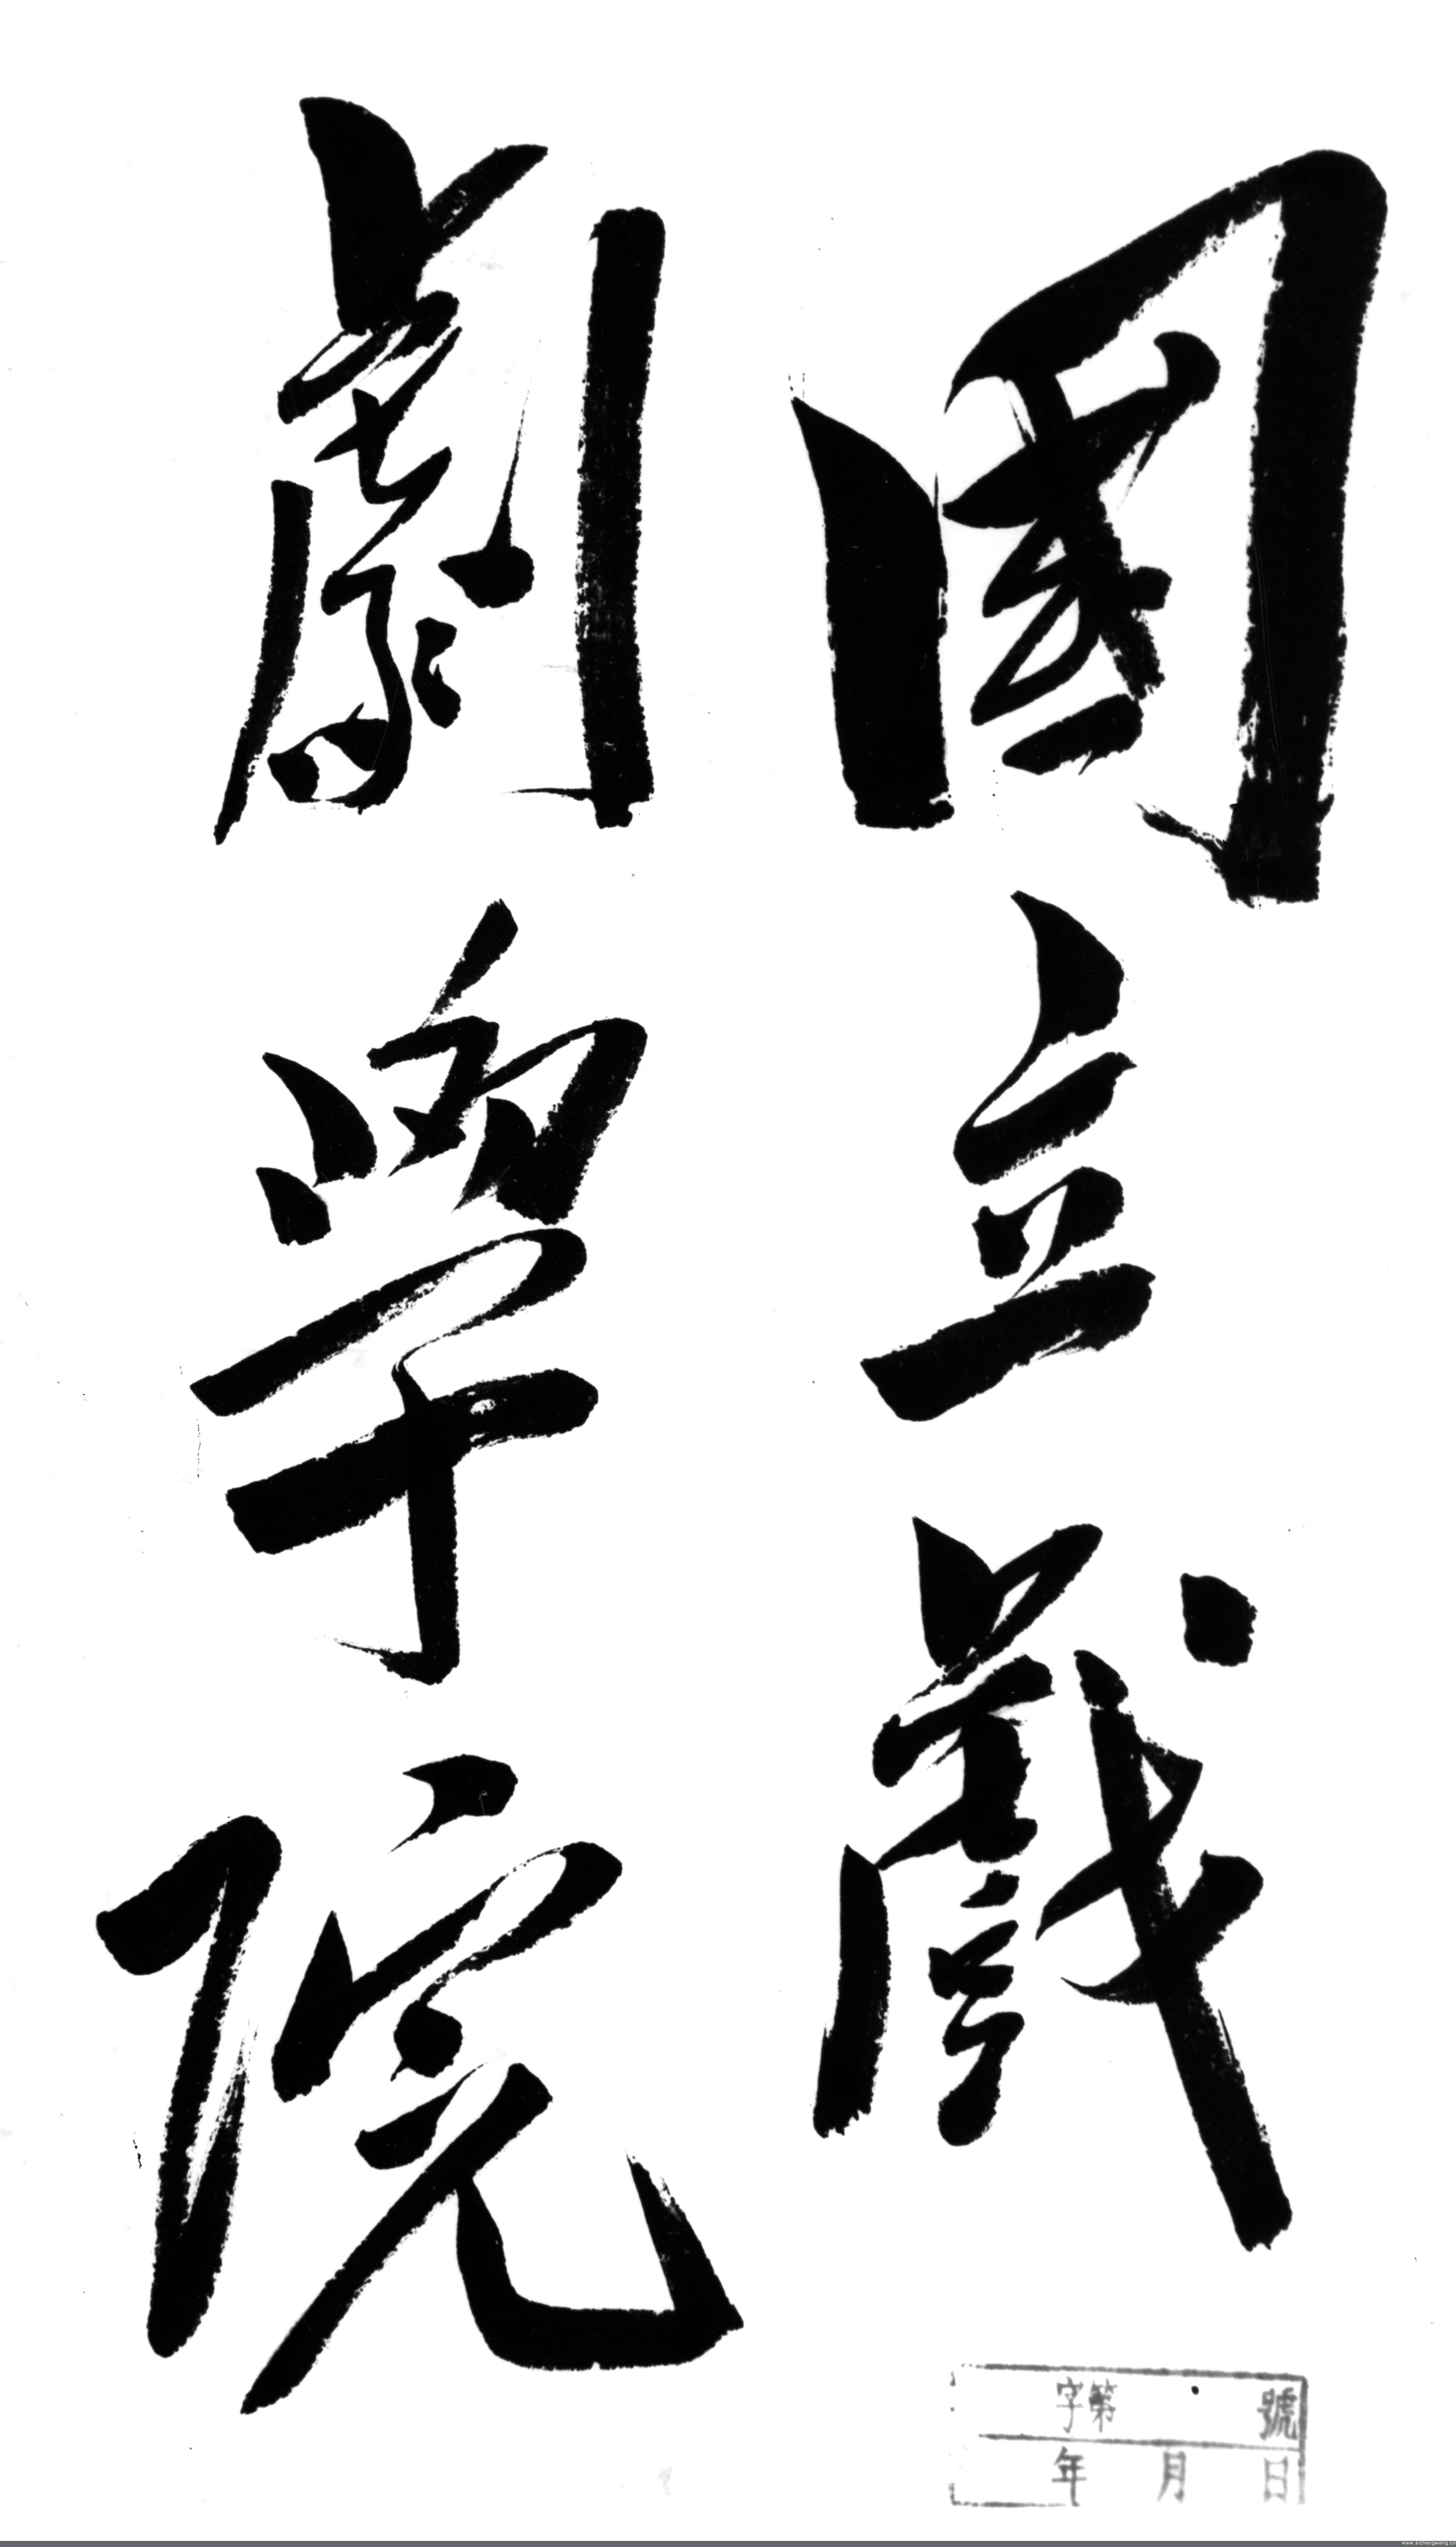 國立戲
劇學院
字第 號
年 月 日
www.sizhengwang.cn